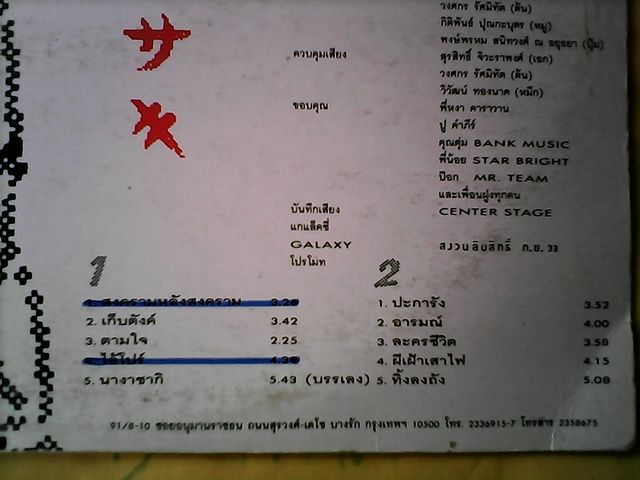 サ
メ
วงศกร รัศมิทัต (ต้น)
กิติพันธ์ ปุณกะบุตร (หมู)
พงษ์พรหม สนิทวงศ์ ณ อยุธยา (ปุ้ม)
ควบคุมเสียง
สุรสิทธิ์ จิวะราพงศ์ (เอก)
วงศกร รัศมิทัต (ต้น)
วิวัฒน์ ทองนาค (หมึก)
ขอบคุณ
พี่หงา คาราวาน
ปู คำภีร์
คุณตุ่ม BANK MUSIC
พี่น้อย STAR BRIGHT
ป๊อก MR. TEAM
และเพื่อนฝูงทุกคน
บันทึกเสียง
CENTER STAGE
แกแล็คซี่
GALAXY
สงวนลิขสิทธิ์ ก.ย. 33
โปรโมท
1
1. สงครามหลังสงคราม 3.26
2. เก็บตังค์ 3.42
3. ตามใจ 2.25
4. ไอ้โปร์ 4.39
5. นางาซากิ 5.43 (บรรเลง)
2
1. ปะการัง 3.52
2. อารมณ์ 4.00
3. ละครชีวิต 3.58
4. ผีเฝ้าเสาไฟ 4.15
5. ทิ้งลงถัง 5.08
91/8-10 ซอยอนุมานราชธน ถนนสุรวงศ์-เดโช บางรัก กรุงเทพฯ 10500 โทร. 2336915-7 โทรสาร 2358675